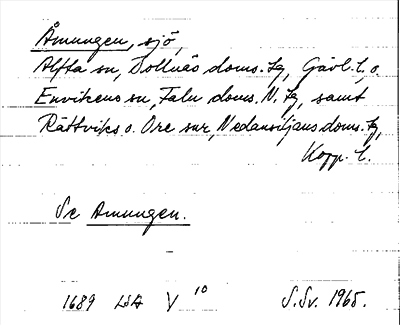 Åmungen, sjö,
Alfta sn, Bollnäs doms. tg, Gävl. l., o.
Envikens sn, Falu doms. N. tg, samt
Rättviks o. Ore snr, Nedansiljans doms. tg,
Kopp. l.
Se Amungen.
1689 LSA V 10
S. Sv. 1965.